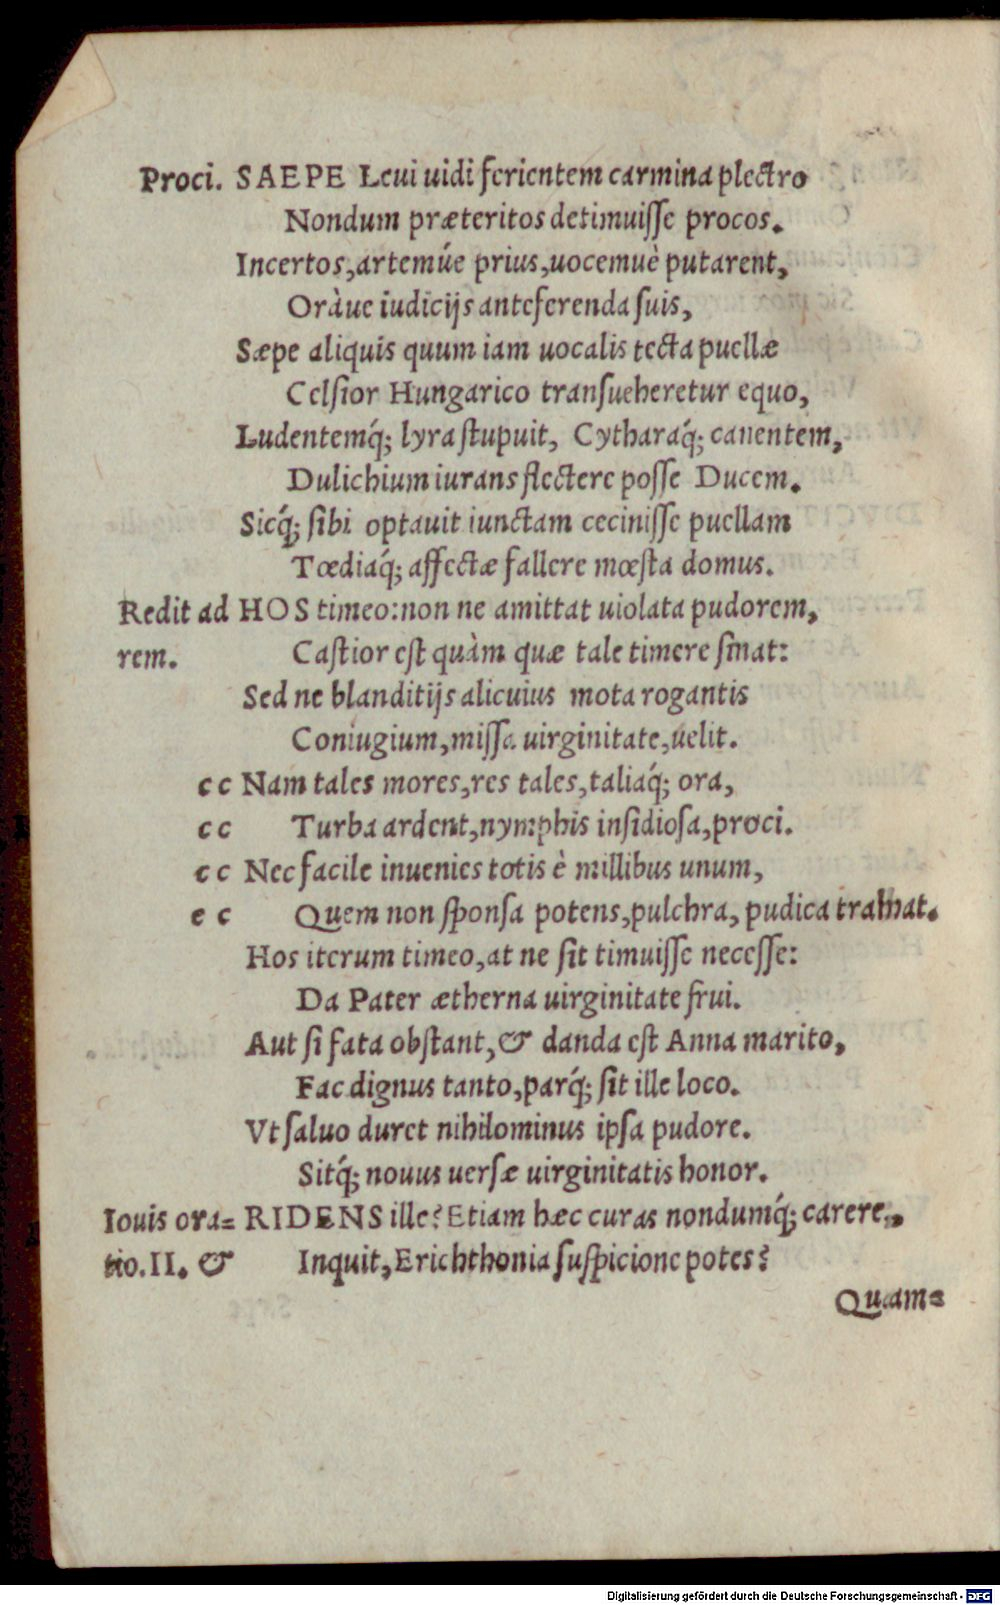 Proci. SAEPE Leui uidi ferientem carmina plectro
Nondum præteritos detimuisse procos.
Incertos, artemúe prius, uocemuè putarent,
Oràue iudicijs anteferenda suis,
Sæpe aliquis quum iam uocalis tecta puellæ
Celsior Hungarico transueheretur equo,
Ludentemq́; lyra stupuit, Cytharaq́; canentem,
Dulichium iurans flectere posse Ducem.
Sicq́; sibi optauit iunctam cecinisse puellam
Tœdiaq́; affectæ fallere mœsta domus.
Redit ad HOS timeo: non ne amittat uiolata pudorem,
rem. Castior est quàm quæ tale timere sinat:
Sed ne blanditijs alicuius mota rogantis
Coniugium, missa uirginitate, uelit.
cc Nam tales mores, res tales, taliaq́; ora,
cc Turba ardent, nymphis insidiosa, proci.
cc Nec facile inuenies totis è millibus unum,
ec Quem non sponsa potens, pulchra, pudica trahat.
Hos iterum timeo, at ne sit timuisse necesse:
Da Pater ætherna uirginitate frui.
Aut si fata obstant, & danda est Anna marito,
Fac dignus tanto, parq́; sit ille loco.
Vt saluo duret nihilominus ipsa pudore.
Sitq́; nouus uersæ uirginitatis honor.
Iouis ora= RIDENS ille? Etiam hæc curas nondumq́; carere,
tio. II. & Inquit, Erichthonia suspicione potes?
Quam=
Digitalisierung gefördert durch die Deutsche Forschungsgemeinschaft - DFG